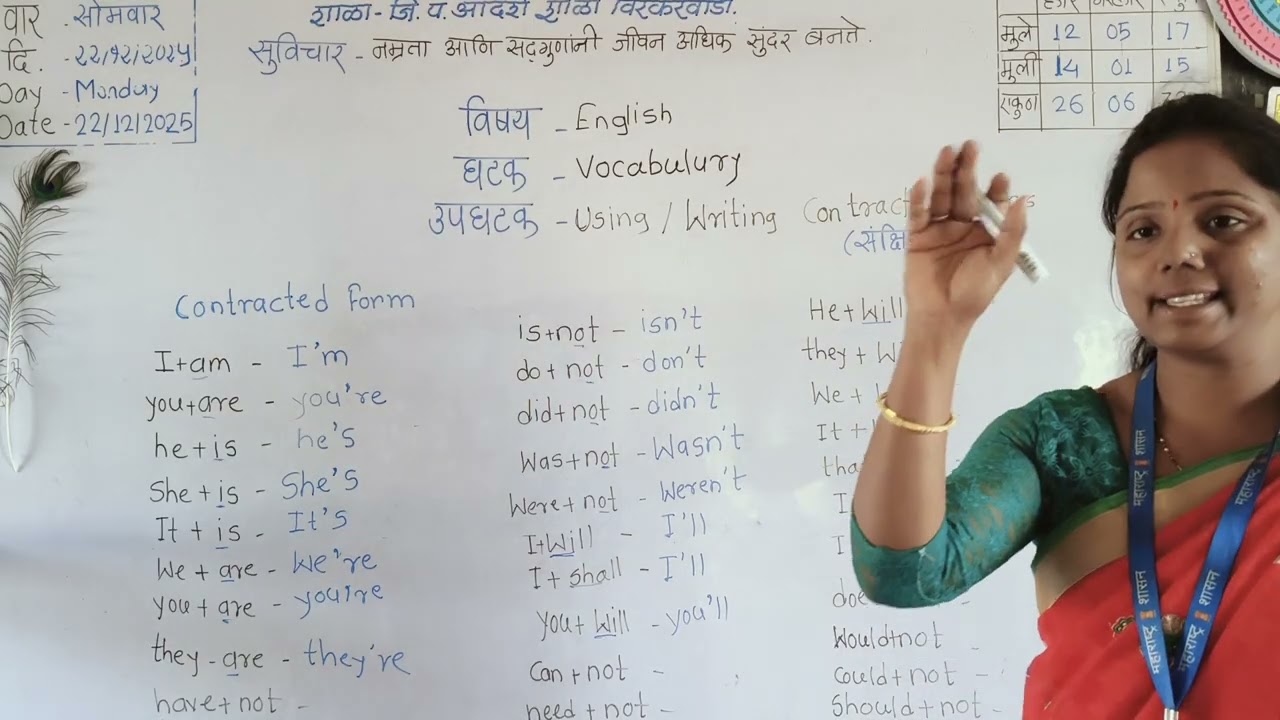 वार - सोमवार
दि. - २२/१२/२०२५
Day - Monday
Date - 22/12/2025
शाळा - जि. प. आदर्श शाळा विरकरवाडी.
सुविचार - नम्रता आणि सद्‌गुणांनी जीवन अधिक सुंदर बनते.
मुले 12 05 17
मुली 14 01 15
26 06
विषय - English
घटक - Vocabulury
उपघटक - Using / Writing
Contracted Form
I+am - I'm
you+are - you're
he+is - he's
She+is - She's
It + is - It's
We + are - We're
you + are - you're
they - are - they're
have+not -
is+not - isn't
do+not - don't
did+not - didn't
Was+not - Wasn't
Were+not - Weren't
I+Will - I'll
I+shall - I'll
you+Will - you'll
Can+not -
need+not -
He+Will
they +
We +
It +
I
I
Would+not
Could+not -
Should+not -
महाराष्ट्र शासन
महाराष्ट्र शासन